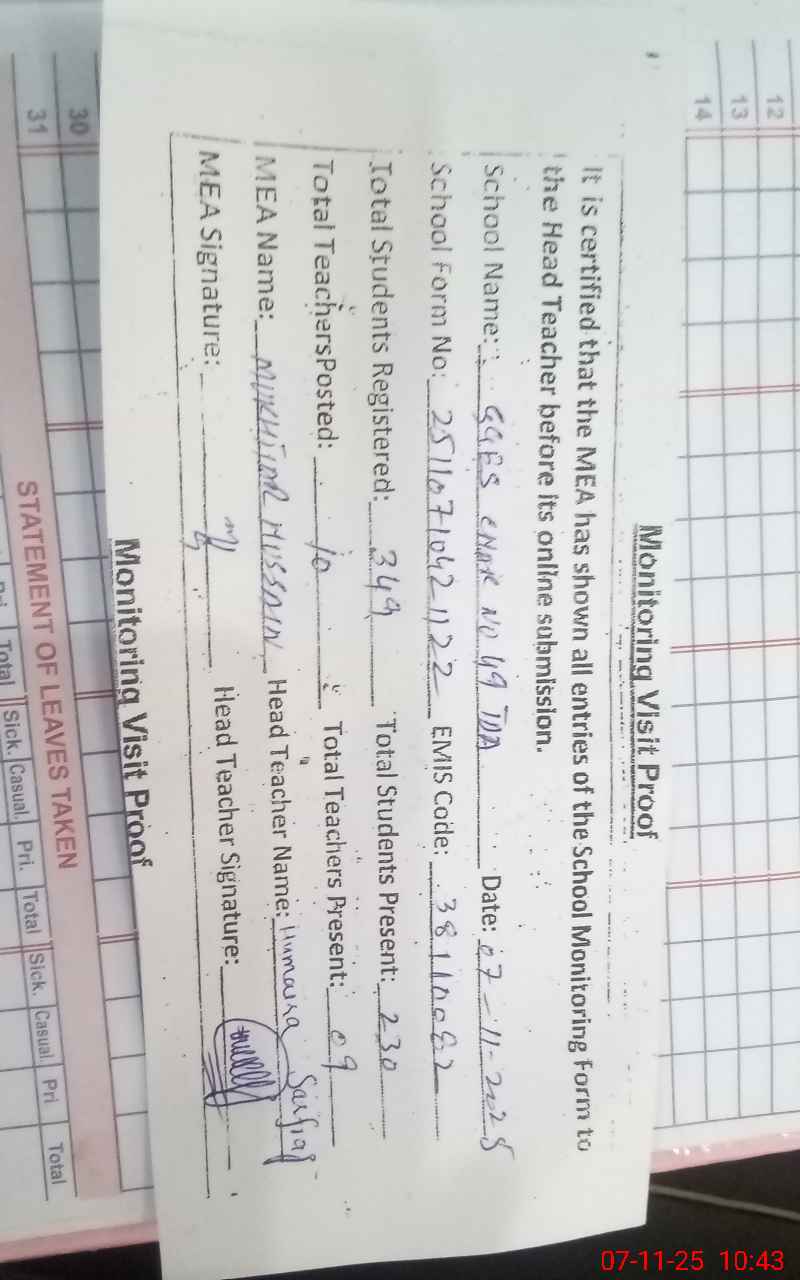 12
13
14
Monitoring Visit Proof
It is certified that the MEA has shown all entries of the School Monitoring Form to
the Head Teacher before its online submission.
School Name: GGES CHAK NO 49 TDA Date: 07-11-2025
School Form No: 25110710421122 EMIS Code: 38110062
Total Students Registered: 349 Total Students Present: 230
Total Teachers Posted: 10 Total Teachers Present: 09
MEA Name: MUKHTIAR HUSSAIN Head Teacher Name: Humaira
MEA Signature: Head Teacher Signature:
Monitoring Visit Proof
30
31
STATEMENT OF LEAVES TAKEN
Pri. Total Sick. Casual. Pri. Total Sick. Casual. Pri Total
07-11-25 10:43